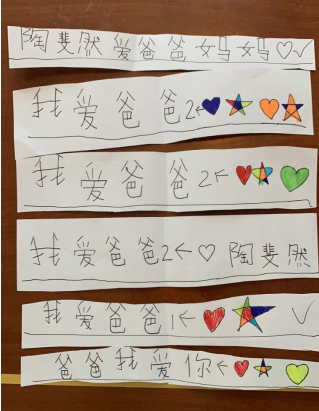 陶斐然爱爸爸妈妈♡✓
我爱爸爸2←
我爱爸爸2←
我爱爸爸2←♡陶斐然
我爱爸爸1←✓
爸爸我爱你←